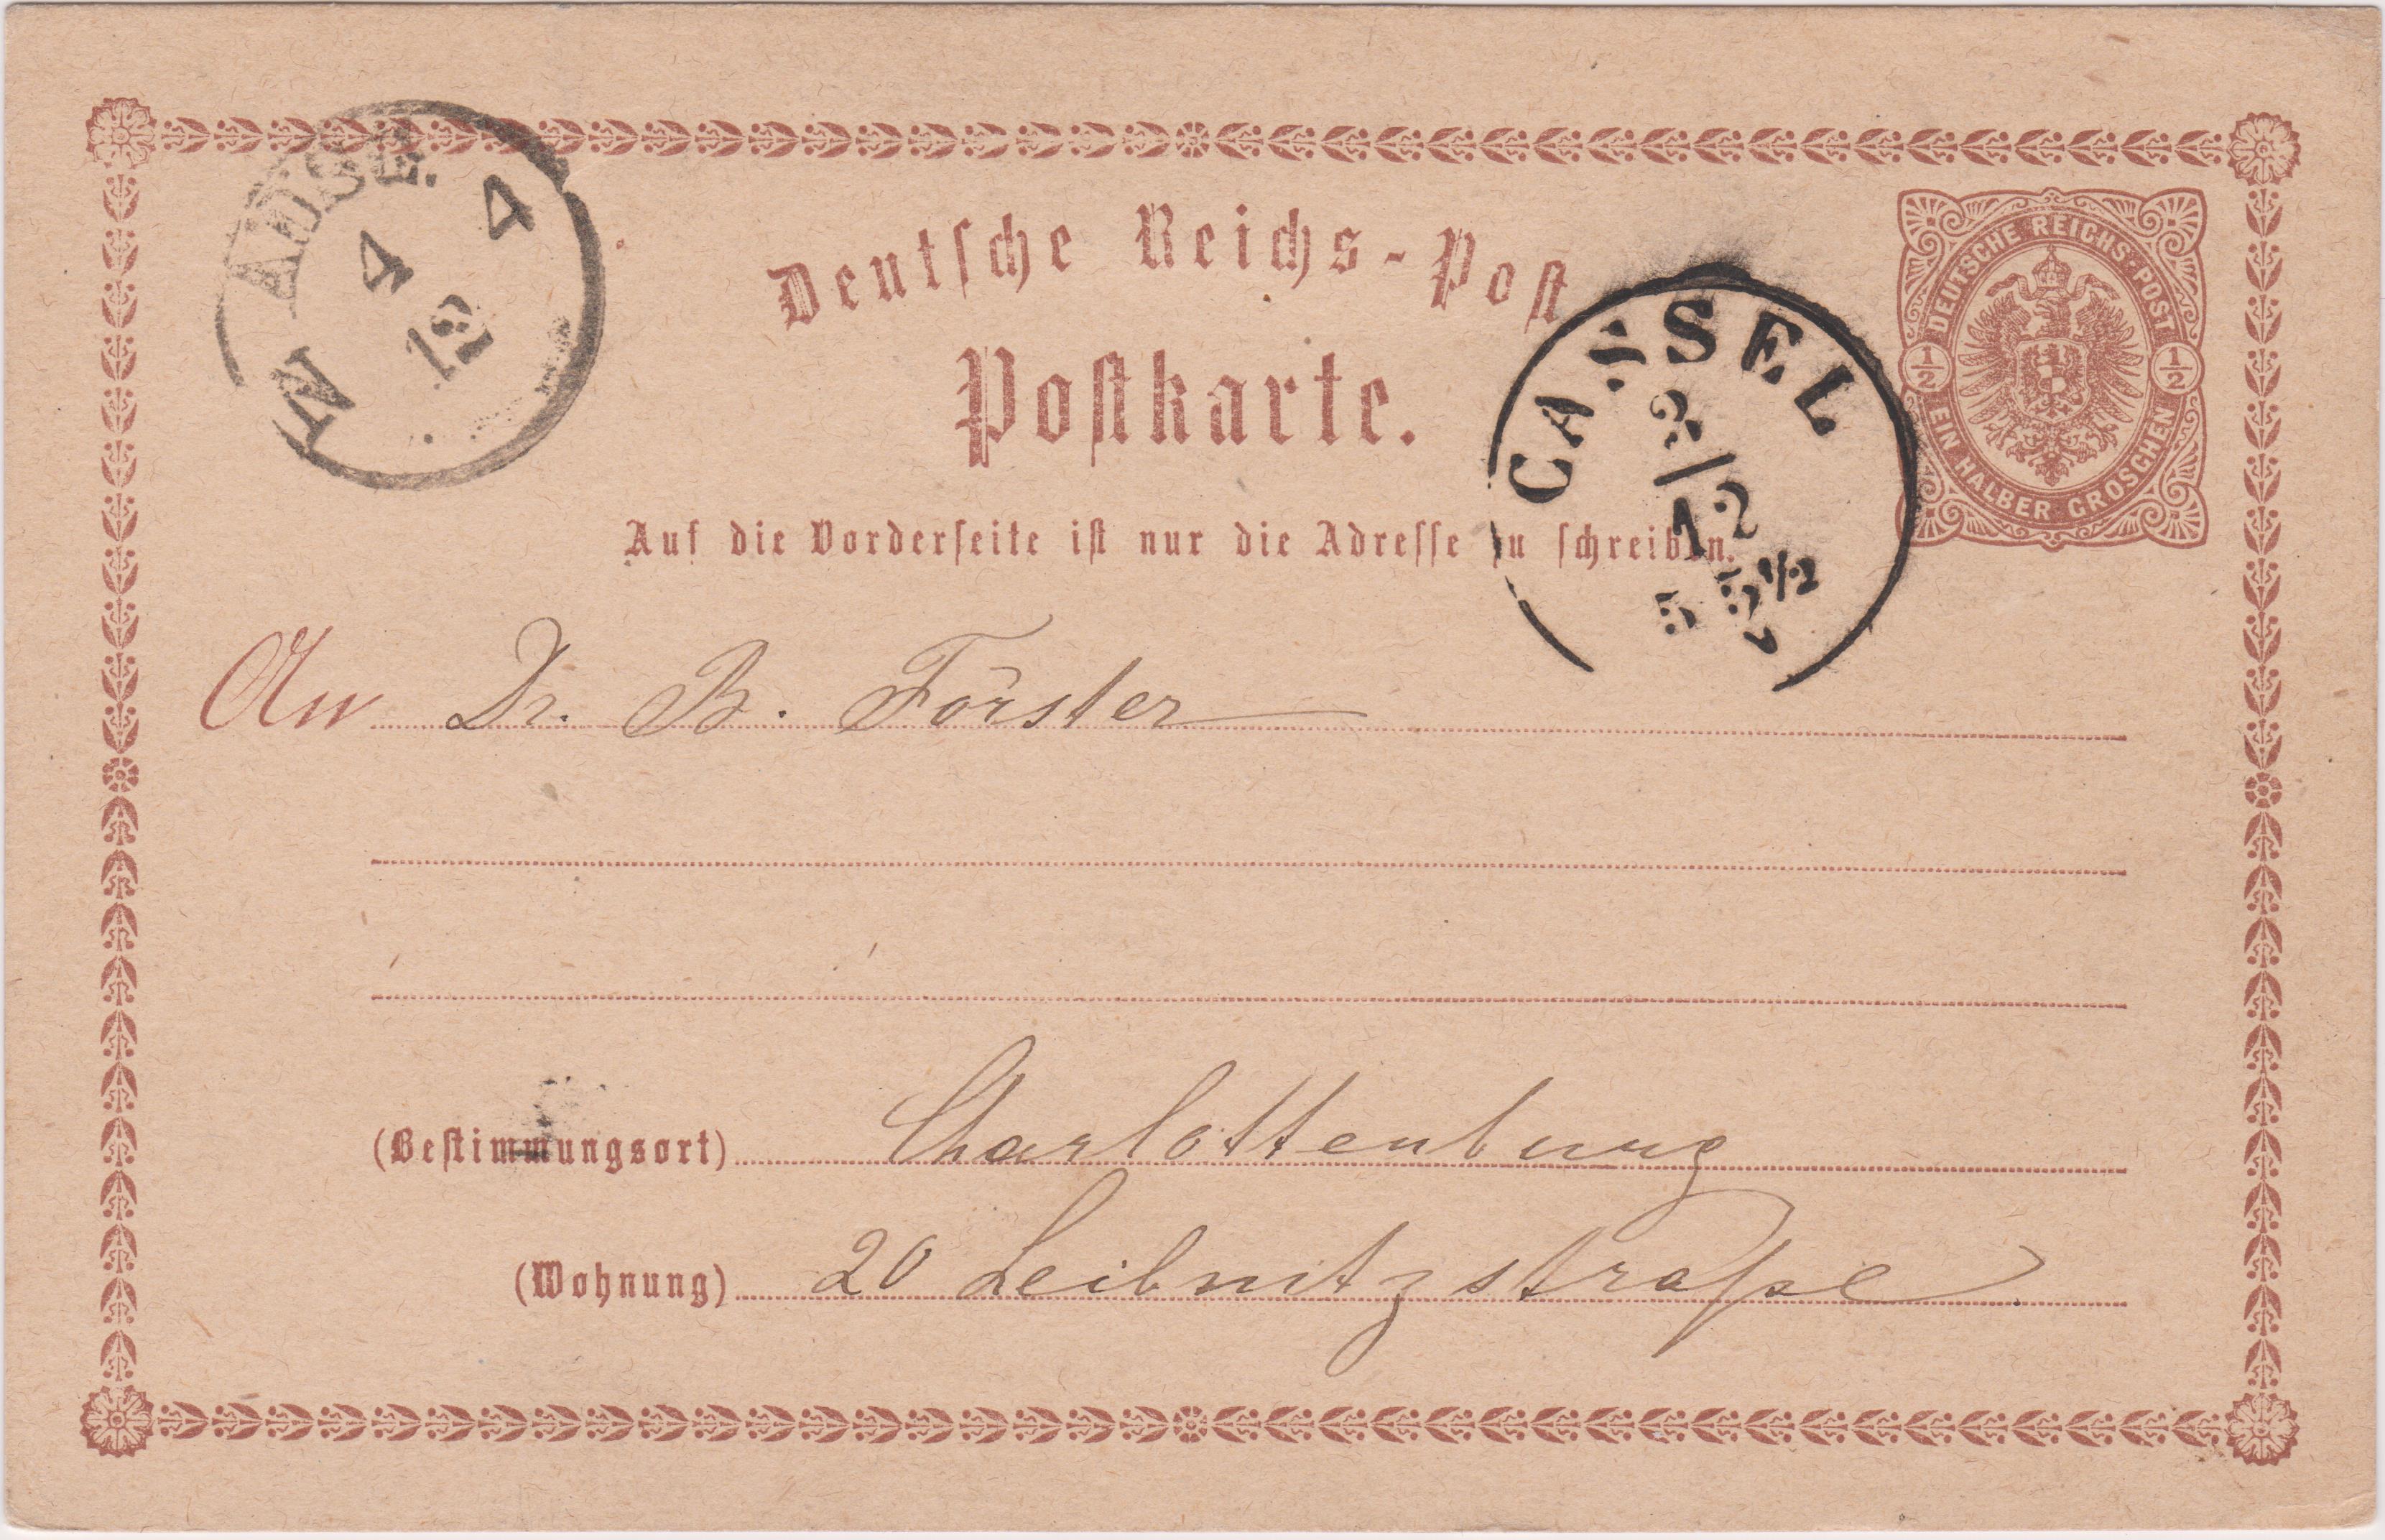 Deutsche Reichs-Post
DEUTSCHE REICHS-POST
½ ½
EIN HALBER GROSCHEN
Postkarte.
Auf die Vorderseite ist nur die Adresse zu schreiben.
N ADSE.
4 4
12
CASSEL
3/12
5 5½
An Dr. B. Förster
(Bestimmungsort) Charlottenburg
(Wohnung) 20 Leibnitzstraße.